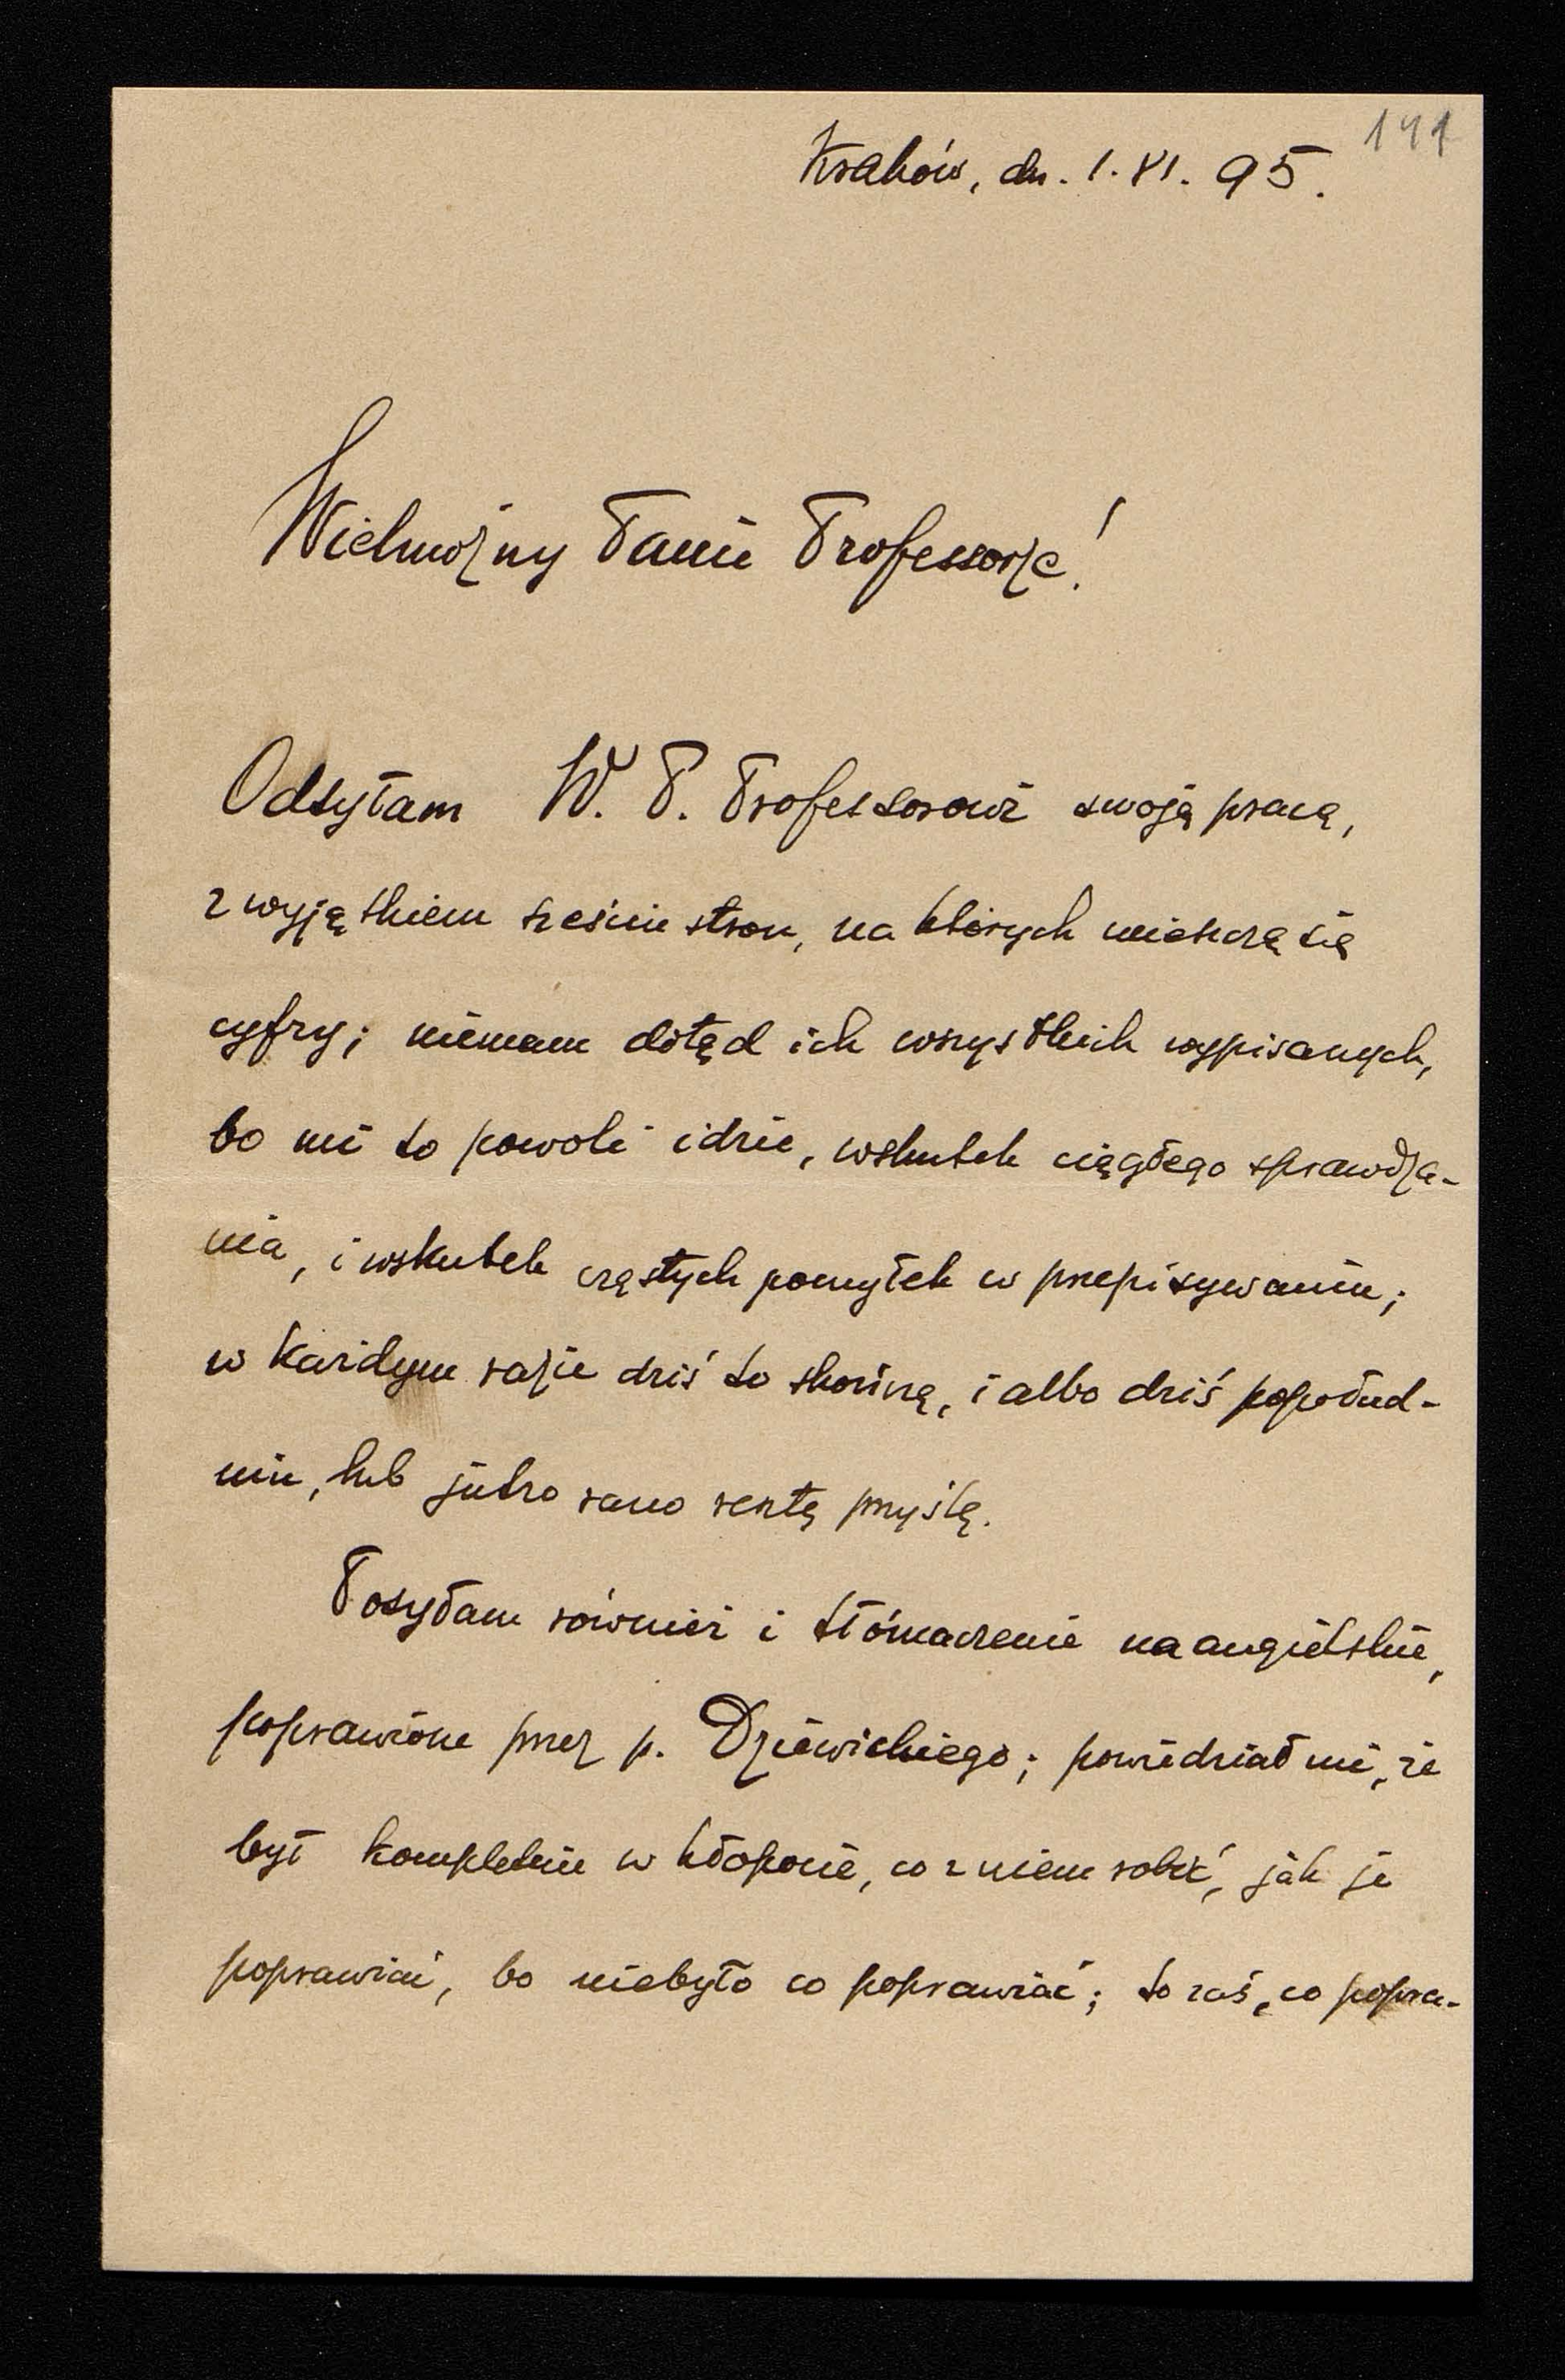 141
Kraków, dn. 1. XI. 95.
Wielmożny Panie Professorze!
Odsyłam W. P. Professorowi swoją pracę,
z wyjątkiem sześciu stron, na których mieszczą się
cyfry; niemam dotąd ich wszystkich wypisanych,
bo mi to powoli idzie, wskutek ciągłego sprawdza-
nia, i wskutek częstych pomyłek w przepisywaniu;
w każdym razie dziś to skończę, i albo dziś popołud-
niu, lub jutro rano resztę przyślę.
Posyłam również i tłómaczenie na angielskie,
poprawione przez p. Dziewickiego; powiedział mi, że
był kompletnie w kłopocie, co z niem robić, jak je
poprawiać, bo niebyło co poprawiać; to zaś, co popra-